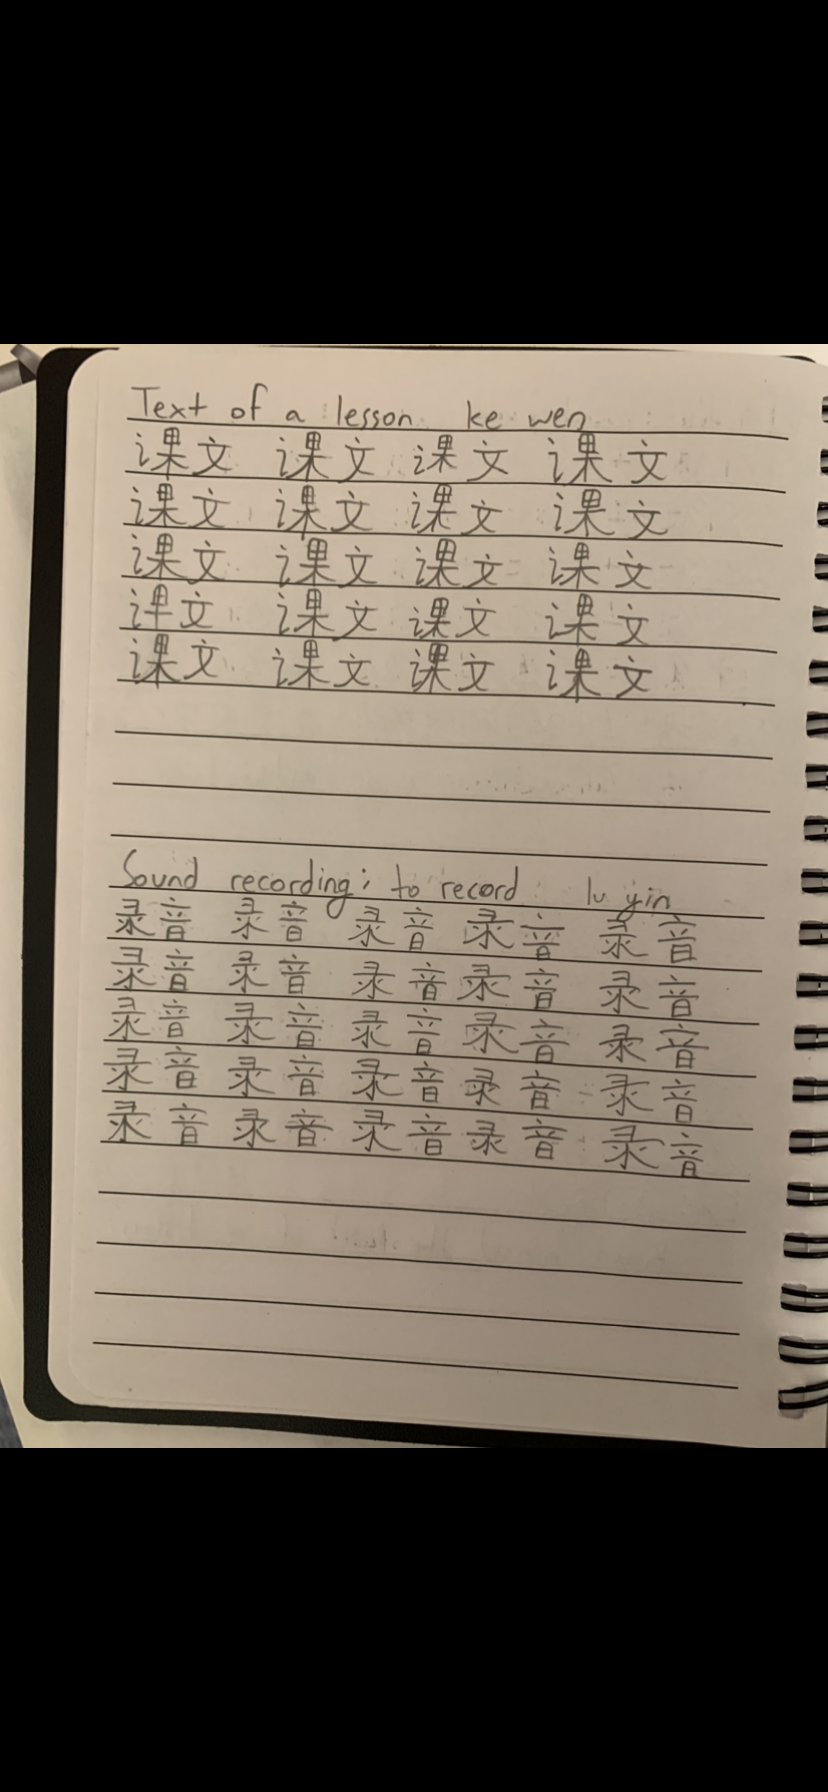 Text of a lesson ke wen
课文 课文 课文 课文
课文 课文 课文 课文
课文 课文 课文 课文
课文 课文 课文 课文
课文 课文 课文 课文
Sound recording; to record lu yin
录音 录音 录音 录音 录音
录音 录音 录音 录音 录音
录音 录音 录音 录音 录音
录音 录音 录音 录音 录音
录音 录音 录音 录音 录音